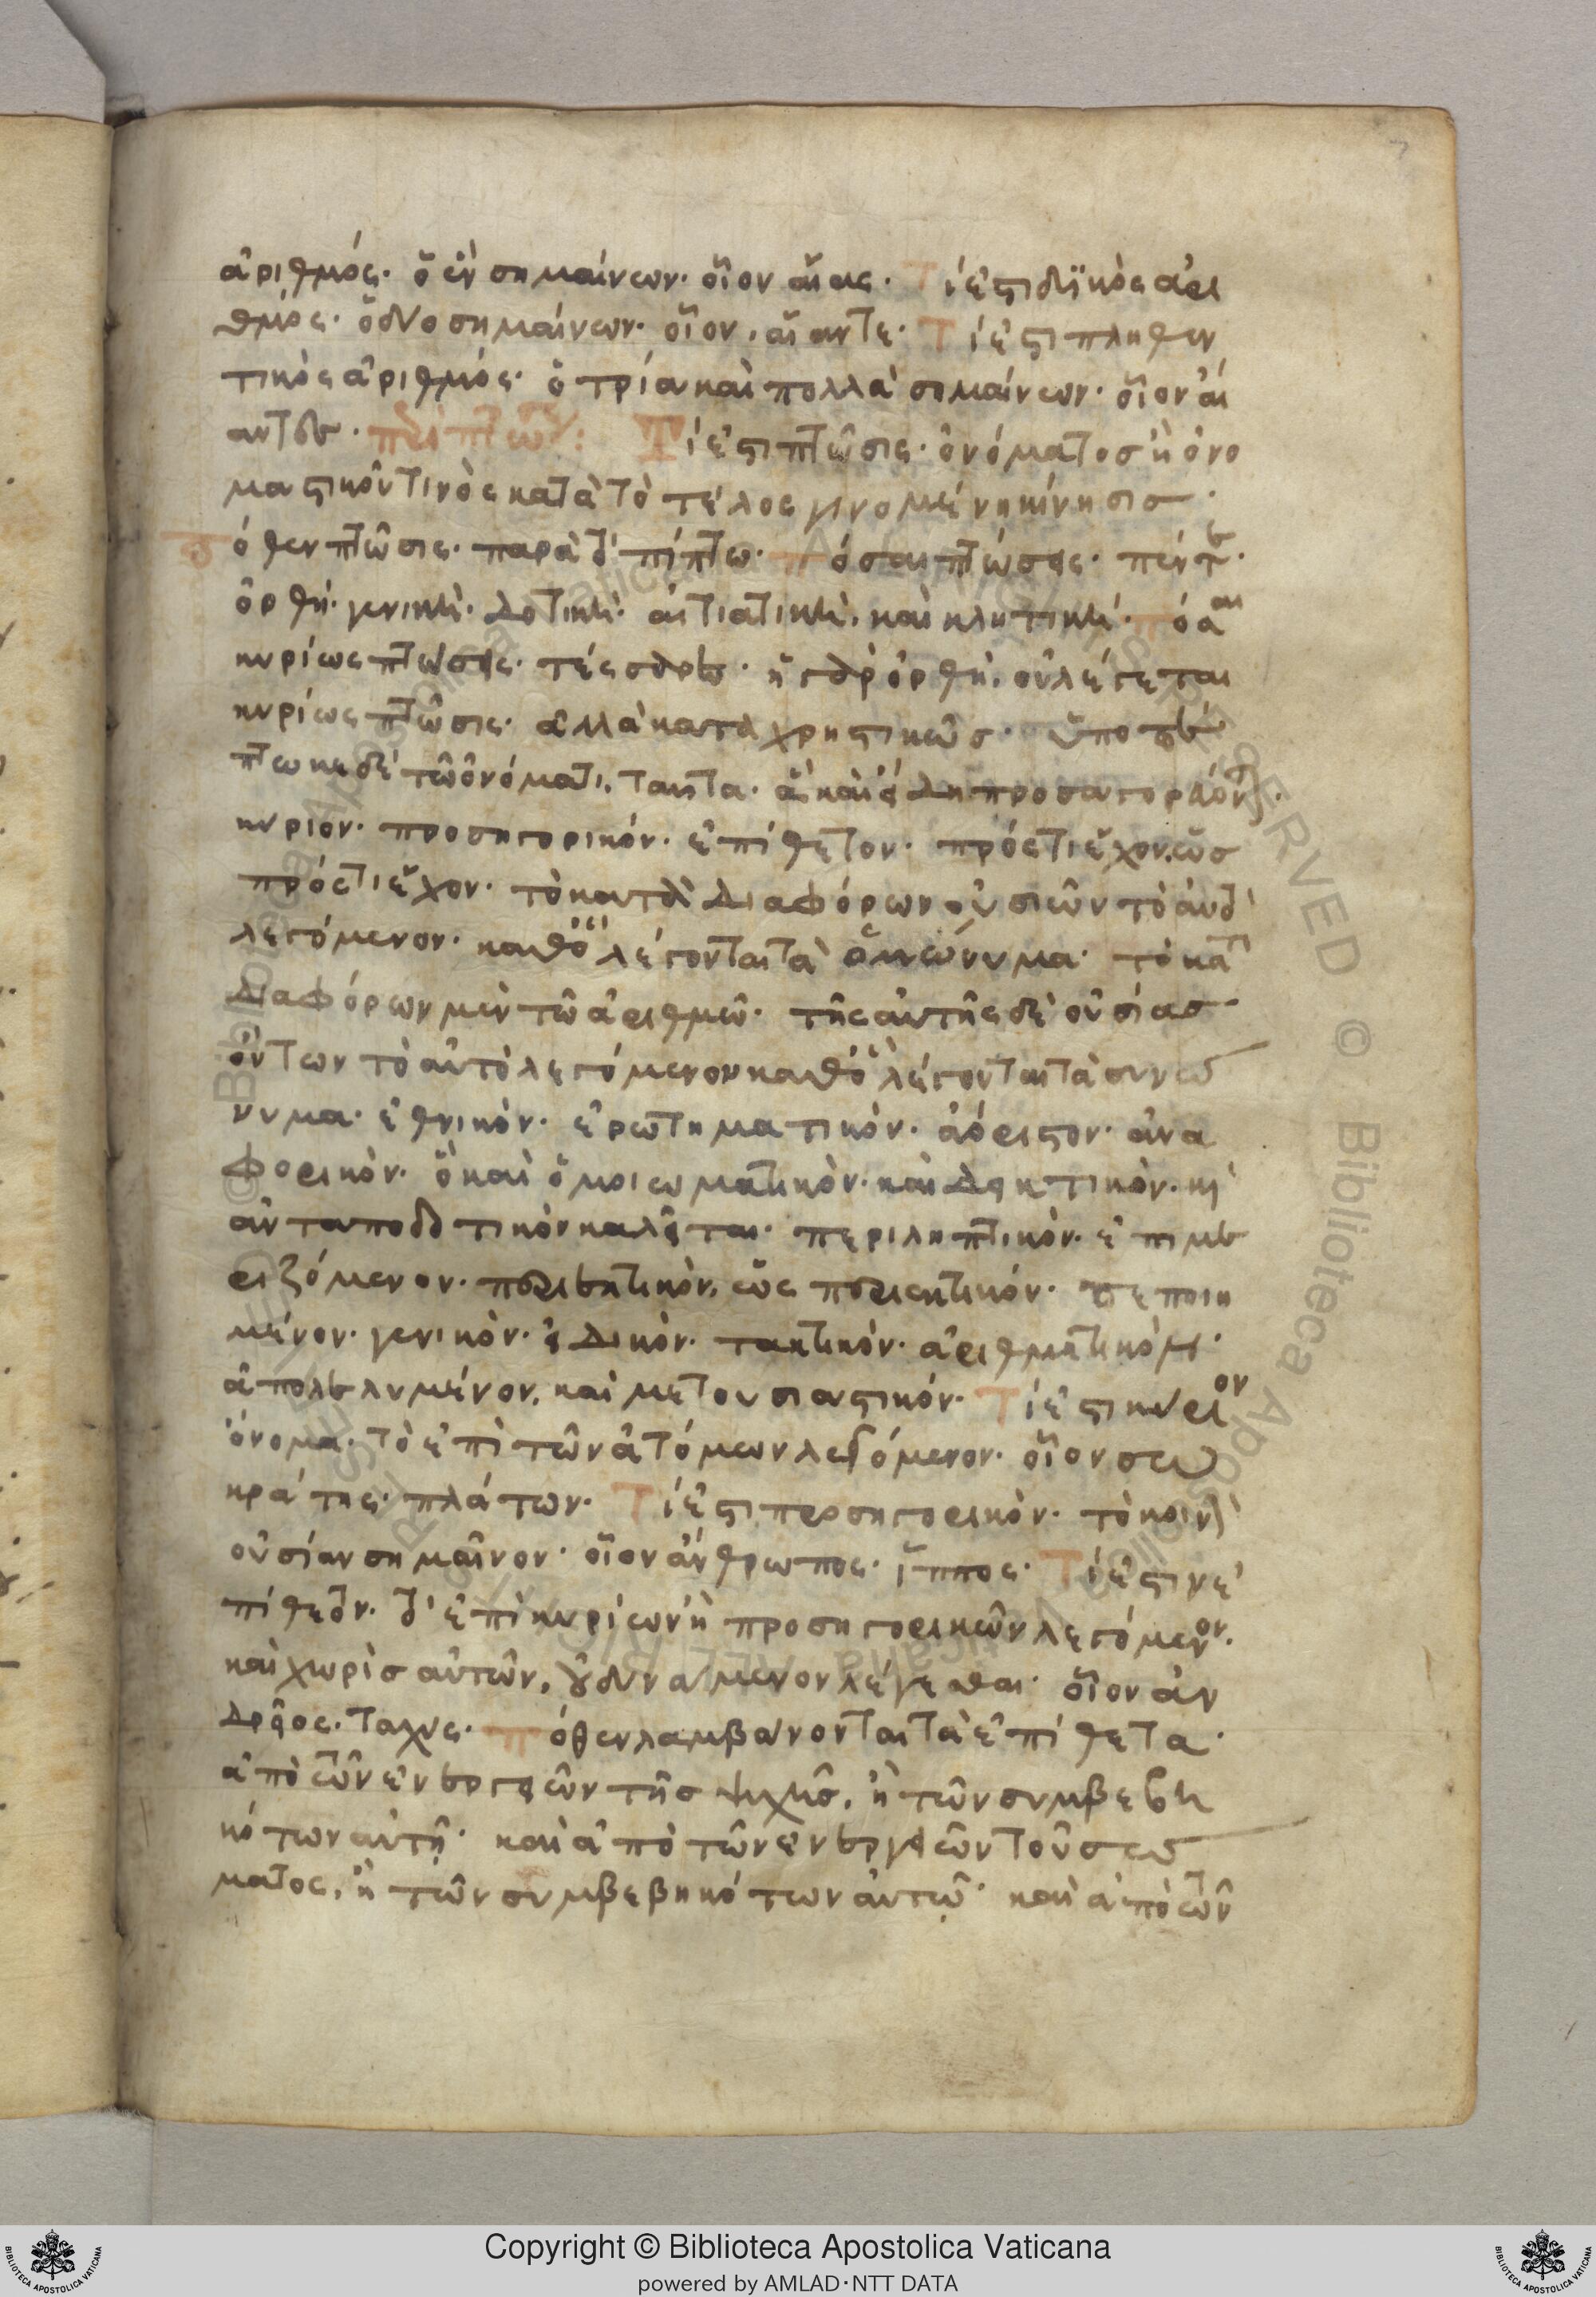 7
ἀριθμός· ὁ ἓν σημαίνων· οἷον αἴας· Τί ἐστι δϋϊκὸς ἀρι
θμός· ὁ δύο σημαίνων· οἷον, αἴαντε· Τί ἐστι πληθυν
τικὸς ἀριθμός· ὁ τρία καὶ πολλὰ σημαίνων· οἷον αἴ
αντες· περὶ πτώσεων: Τί ἐστι πτῶσις· ὀνόματος ἢ ὀνο
ματικοῦ τινὸς κατὰ τὸ τέλος γινομένη κίνησις·
πόθεν πτῶσις· παρὰ τὸ πίπτω· πόσαι πτώσεις· πέντε·
ὀρθή· γενική· δοτική· αἰτιατική, καὶ κλητική· πόσαι
κυρίως πτώσεις· τέσσαρες· ἡ γὰρ ὀρθὴ, οὐ λέγεται
κυρίως πτῶσις· ἀλλὰ καταχρηστικῶς· ὑποπέ
πτωκε δὲ τῶ ὀνόματι, ταῦτα· ἃ καὶ εἴδη προσαγορεύονται·
κύριον· προσηγορικόν· ἐπίθετον· πρός τι ἔχον, ὡς
πρός τι ἔχον· τὸ κατὰ διαφόρων οὐσιῶν τὸ αὐτὸ
λεγόμενον· καθὸ λέγονται τὰ ὁμώνυμα· τὸ κατὰ
διαφόρων μὲν τῶ ἀριθμῶ· τῆς αὐτῆς δὲ οὐσίας
ὄντων τὸ αὐτὸ λεγόμενον καθὸ λέγονται τὰ συνώ
νυμα· ἐθνικὸν· ἐρωτηματικὸν· ἀόριστον· ἀνα
φορικὸν· ὃ καὶ ὁμοιωματικὸν· καὶ δεικτικὸν· καὶ
ἀνταποδοτικὸν καλεῖται· περιληπτικὸν· ἐπιμε
ριζόμενον· περιεκτικὸν, ὡς περιεκτικόν· πεποιη
μένον· γενικὸν· εἰδικὸν· τακτικὸν· ἀριθμητικὸν·
ἀπολελυμένον, καὶ μετουσιαστικόν· Τί ἐστι κύριον
ὄνομα· τὸ ἐπὶ τῶν ἀτόμων λεγόμενον· οἷον σω
κράτης· πλάτων· Τί ἐστι προσηγορικὸν· τὸ κοινὴν
οὐσίαν σημαῖνον· οἷον ἄνθρωπος· ἵππος· Τί ἐστιν ἐ
πίθετον· τὸ ἐπὶ κυρίων ἢ προσηγορικῶν λεγόμενον·
καὶ χωρὶς αὐτῶν, οὐ δυνάμενον λέγεσθαι· οἷον ἀν
δρεῖος· ταχύς· πόθεν λαμβάνονται τὰ ἐπίθετα·
ἀπὸ τῶν ἐνεργειῶν τῆς ψυχῆς, ἢ τῶν συμβεβη
κότων αὐτῆ· καὶ ἀπὸ τῶν ἐνεργειῶν τοῦ σώ
ματος, ἢ τῶν συμβεβηκότων αὐτῶ· καὶ ἀπὸ τῶν
Copyright © Biblioteca Apostolica Vaticana
powered by AMLAD·NTT DATA